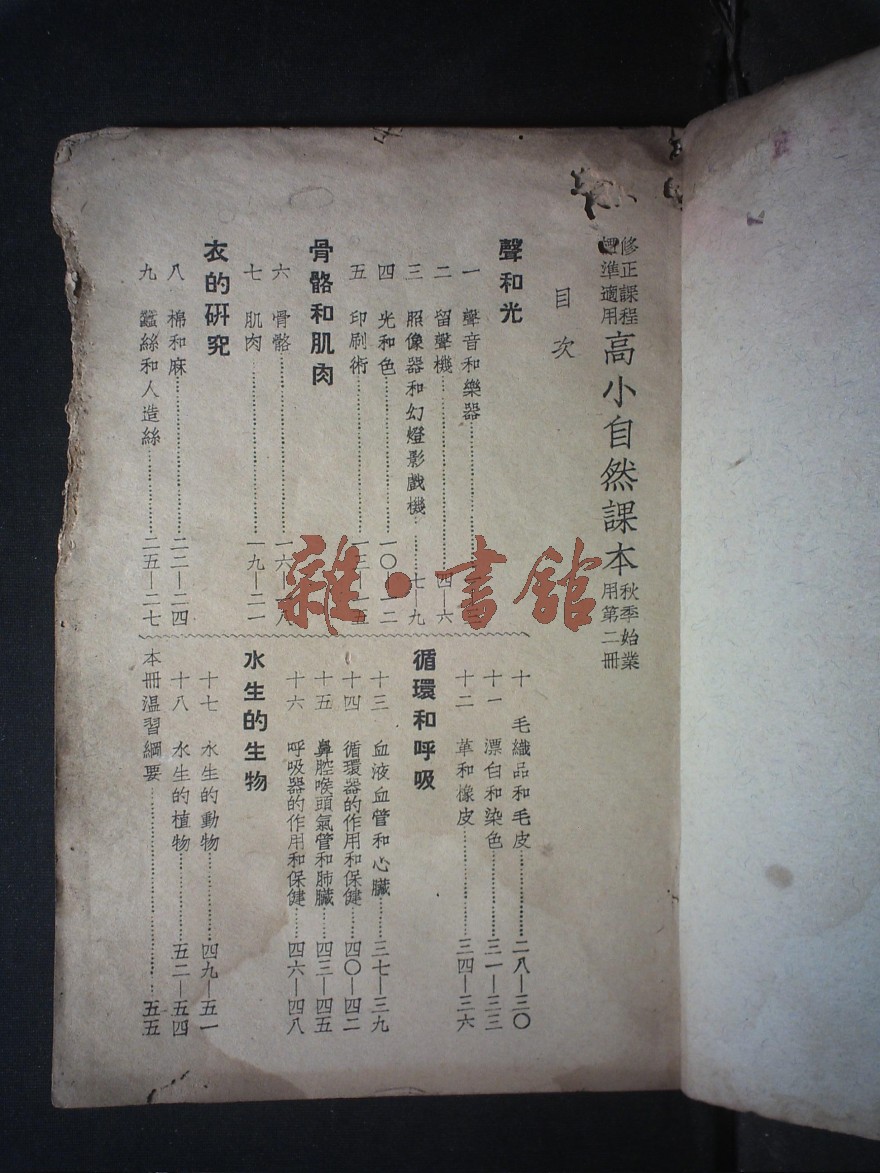 修正課程
標準適用
高小自然課本
秋季始業
用第二冊
目次
聲和光
一 聲音和樂器
二 留聲機 四—六
三 照像器和幻燈影戲機 七—九
四 光和色 一〇—一二
五 印刷術 一三—一五
骨骼和肌肉
六 骨骼 一六—一八
七 肌肉 一九—二一
衣的研究
八 棉和麻 二二—二四
九 蠶絲和人造絲 二五—二七
十 毛織品和毛皮 二八—三〇
十一 漂白和染色 三一—三三
十二 革和橡皮 三四—三六
循環和呼吸
十三 血液血管和心臟 三七—三九
十四 循環器的作用和保健 四〇—四二
十五 鼻腔喉頭氣管和肺臟 四三—四五
十六 呼吸器的作用和保健 四六—四八
水生的生物
十七 水生的動物 四九—五一
十八 水生的植物 五二—五四
本冊溫習綱要 五五
雜·書館